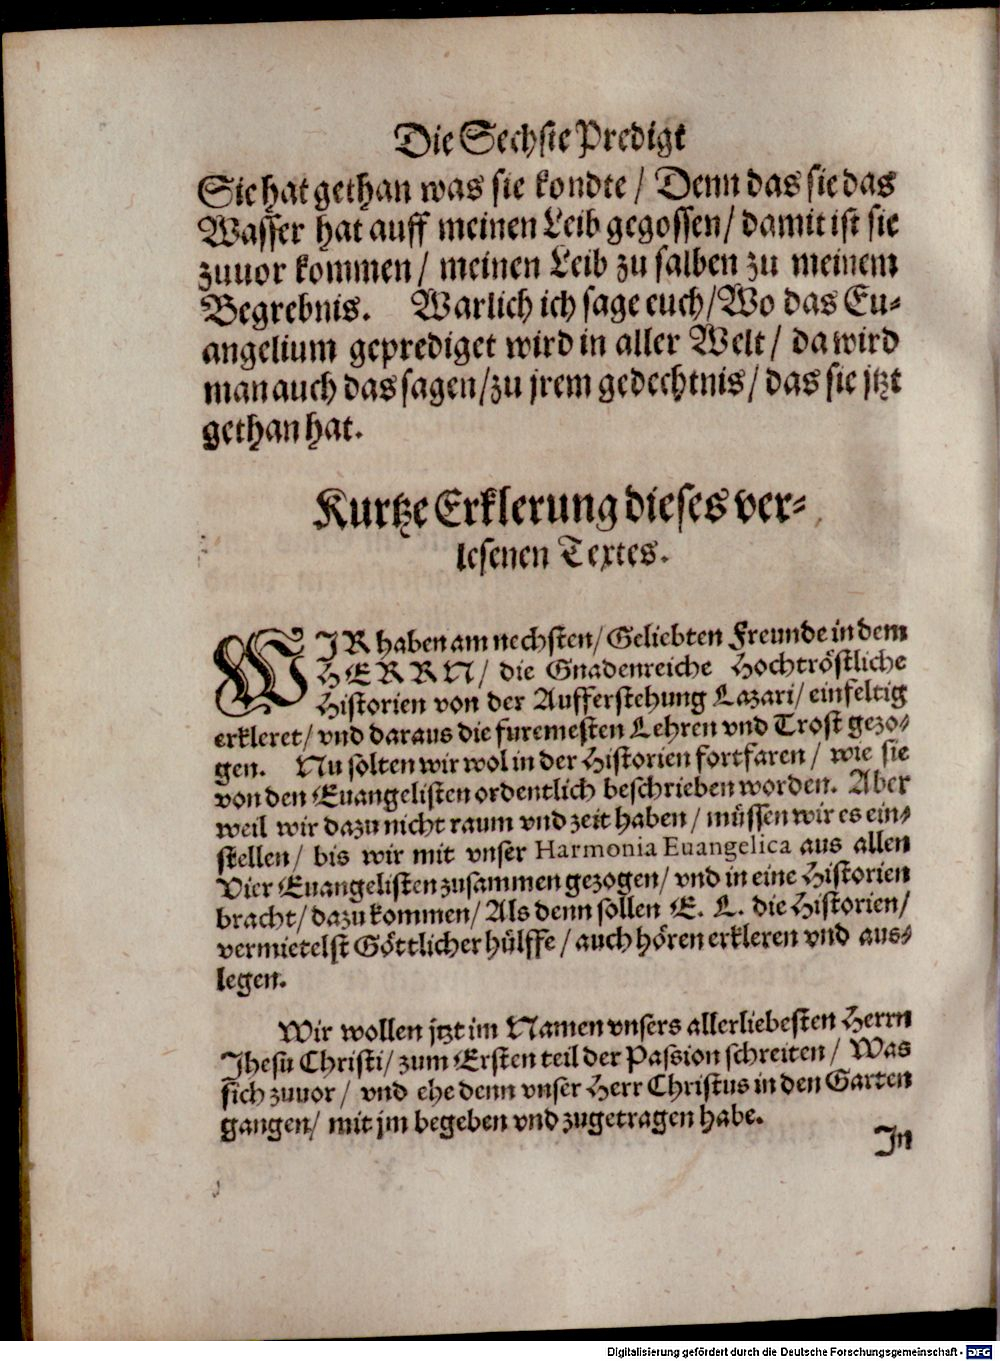 Die Sechste Predigt
Sie hat gethan was sie kondte / Denn das sie das
Wasser hat auff meinen Leib gegossen / damit ist sie
zuuor kommen / meinen Leib zu salben zu meinem
Begrebnis. Warlich ich sage euch / Wo das Eu-
angelium geprediget wird in aller Welt / da wird
man auch das sagen / zu jrem gedechtnis / das sie jtzt
gethan hat.
Kurtze Erklerung dieses ver-
lesenen Textes.
WIR haben am nechsten / Geliebten Freunde in dem
HERRN / die Gnadenreiche Hochtröstliche
Historien von der Aufferstehung Lazari / einfeltig
erkleret / vnd daraus die furemesten Lehren vnd Trost gezo-
gen. Nu solten wir wol in der Historien fortfaren / wie sie
von den Euangelisten ordentlich beschrieben worden. Aber
weil wir dazu nicht raum vnd zeit haben / müssen wir es ein-
stellen / bis wir mit vnser Harmonia Euangelica aus allen
Vier Euangelisten zusammen gezogen / vnd in eine Historien
bracht / dazu kommen / Als denn sollen E. L. die Historien /
vermietelst Göttlicher hülffe / auch hören erkleren vnd aus-
legen.
Wir wollen jtzt im Namen vnsers allerliebesten Herrn
Jhesu Christi / zum Ersten teil der Passion schreiten / Was
sich zuuor / vnd ehe denn vnser Herr Christus in den Garten
gangen / mit jm begeben vnd zugetragen habe.
In
Digitalisierung gefördert durch die Deutsche Forschungsgemeinschaft - DFG